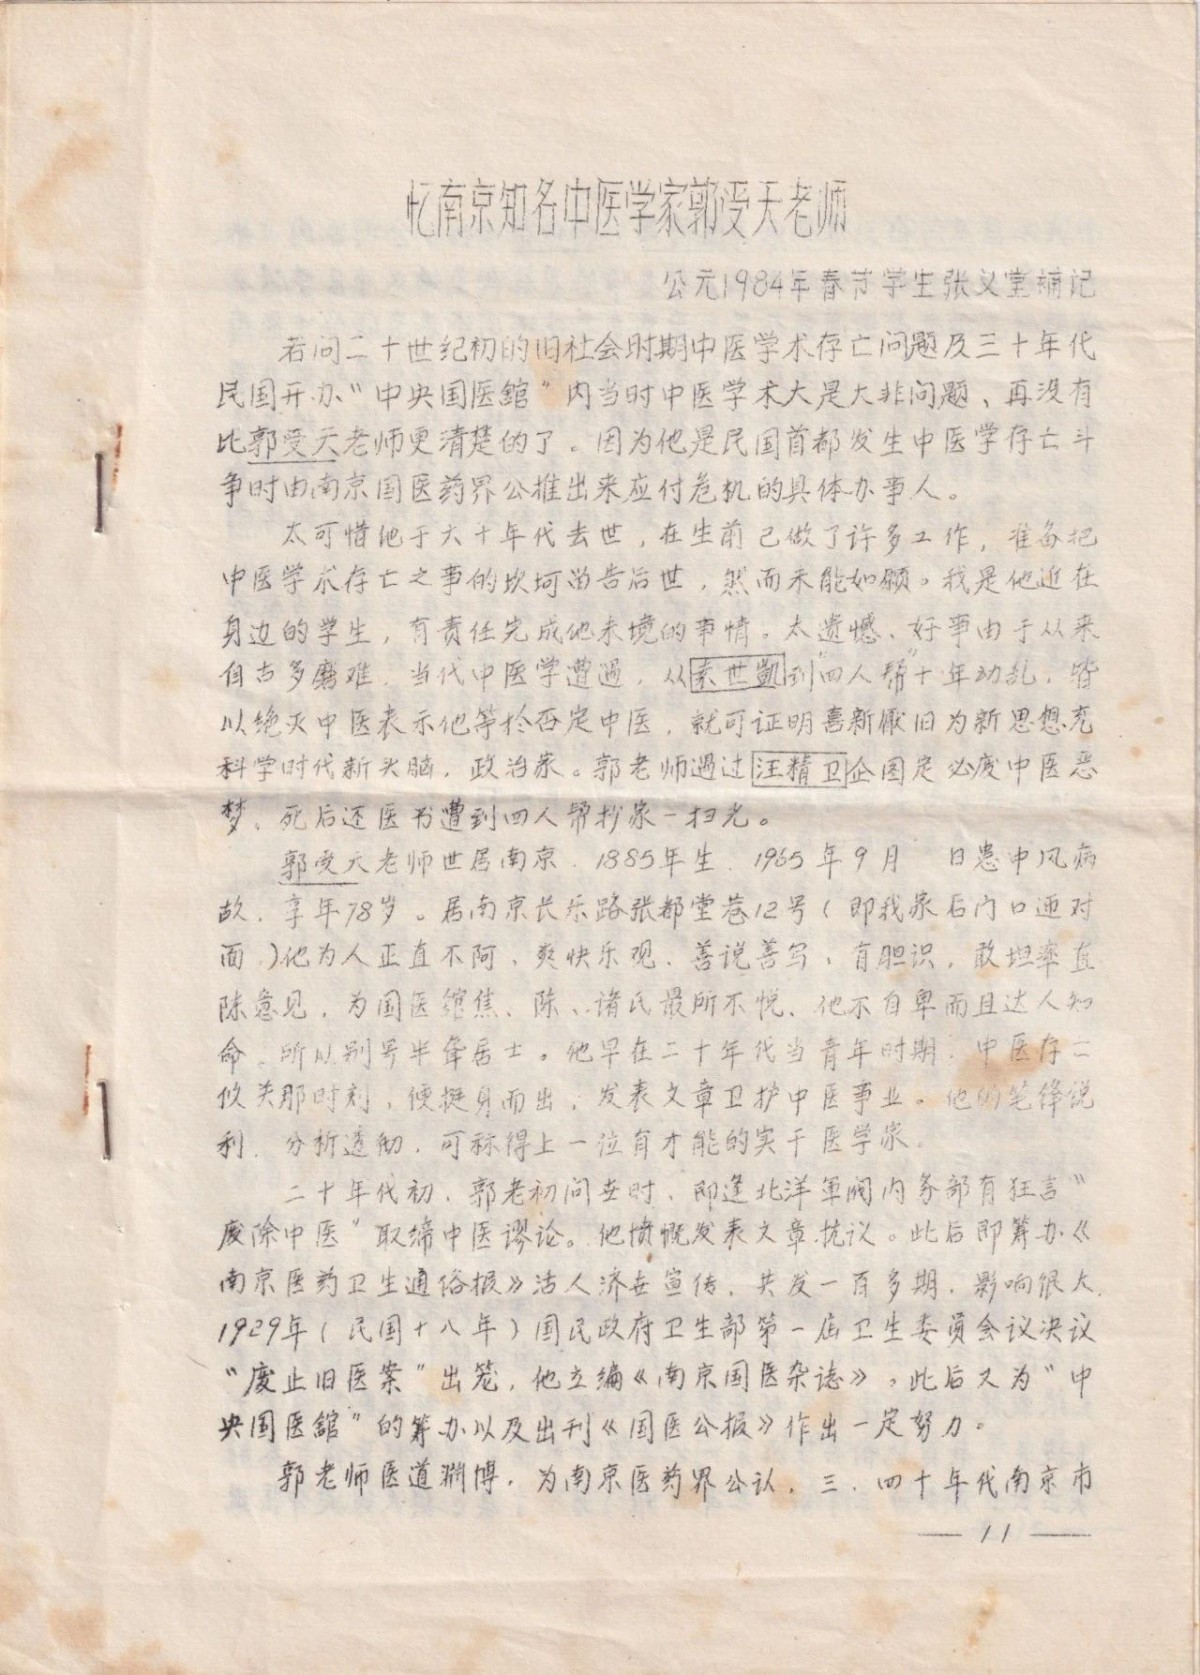 忆南京知名中医学家郭受天老师
公元1984年春节学生张义堂补记
若问二十世纪初的旧社会时期中医学术存亡问题及三十年代
民国开办“中央国医舘”内当时中医学术大是大非问题、再没有
比郭受天老师更清楚的了。因为他是民国首都发生中医学存亡斗
争时由南京国医药界公推出来应付危机的具体办事人。
太可惜他于六十年代去世，在生前已做了许多工作，准备把
中医学术存亡之事的坎坷留告后世，然而未能如愿。我是他近在
身边的学生，有责任完成他未境的事情。太遗憾、好事由于从来
自古多磨难．当代中医学遭遇，从袁世凱到“四人帮”十年动乱，皆
以绝灭中医表示他等於否定中医，就可证明喜新厭旧为新思想充
科学时代新头脑，政治家。郭老师遇过汪精卫企图定必废中医恶
梦、死后还医书遭到四人帮抄家一扫光。
郭受天老师世居南京．1885年生．1965年9月 日患中风病
故．享年78岁。居南京长乐路张都堂巷12号（即我家后门口迎对
面）他为人正直不阿、爽快乐观．善说善写，有胆识，敢坦率直
陈意见，为国医舘焦、陈、诸氏最所不悦、他不自卑而且达人知
命、所以别号半聋居士。他早在二十年代当青年时期．中医存亡
攸关那时刻，便挺身而出，发表文章卫护中医事业。他的笔锋锐
利．分析透彻，可称得上一位有才能的实干医学家．
二十年代初、郭老初问世时、即逢北洋軍阀内务部有狂言“
废除中医”取缔中医谬论。他愤慨发表文章抗议。此后即筹办《
南京医药卫生通俗报》活人济世宣传，共发一百多期，影响很大．
1929年（民国十八年）国民政府卫生部第一届卫生委员会议决议
“废止旧医案”出笼，他立编《南京国医杂誌》，此后又为“中
央国医舘”的筹办以及出刊《国医公报》作出一定努力。
郭老师医道渊博，为南京医药界公认．三．四十年代南京市
— 11 —